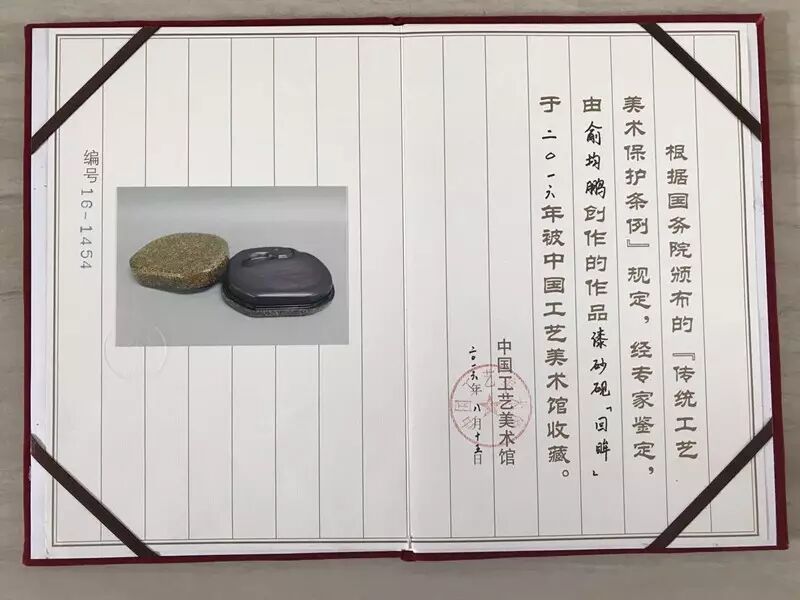 根据国务院颁布的『传统工艺
美术保护条例』规定，经专家鉴定，
由俞均鹏创作的作品漆砂砚「回眸」
于二〇一六年被中国工艺美术馆收藏。
中国工艺美术馆
二〇一六年八月十五日
编号16-1454